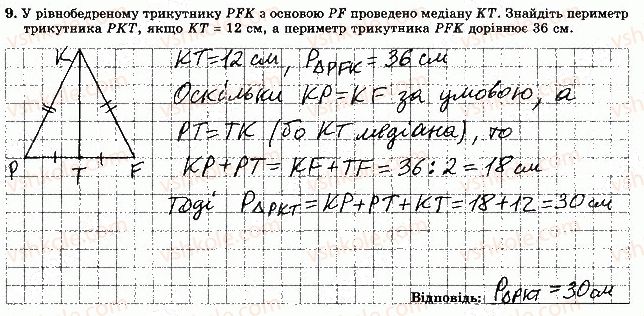 9. У рівнобедреному трикутнику PFK з основою PF проведено медіану KT. Знайдіть периметр
трикутника PKT, якщо KT = 12 см, а периметр трикутника PFK дорівнює 36 см.
K
P T F
KT=12 см, P△PFK = 36 см
Оскільки KP=KF за умовою, а
PT=TK (бо KT медіана), то
KP+PT = KF+TF = 36:2 = 18 см
Тоді P△PKT = KP+PT+KT = 18+12 = 30 см
Відповідь: P△PKT = 30 см